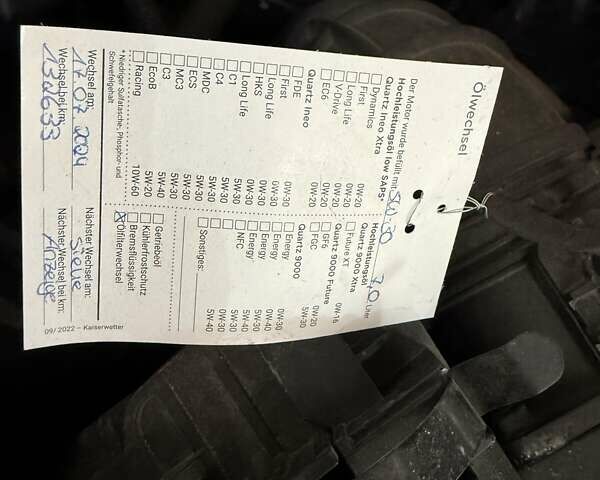 Ölwechsel
Der Motor wurde befüllt mit 5W-30 7,0 Liter
Hochleistungsöl low SAPS*
Quartz Ineo Xtra
Dynamics 0W-20
First 0W-20
Long Life 0W-20
V-Drive 0W-20
EC6 0W-20
Quartz Ineo
FDE 0W-30
First 0W-30
Long Life 0W-30
HKS 5W-30
Long Life 5W-30
C1 5W-30
C4 5W-30
MDC 5W-30
ECS 5W-30
MC3 5W-30
C3 5W-40
EcoB 5W-20
Racing 10W-60
*Niedriger Sulfatasche-, Phosphor- und
Schwefelgehalt
Hochleistungsöl
Quartz 9000 Xtra
Future XT 0W-16
Quartz 9000 Future
GF6 0W-20
FGC 5W-30
Quartz 9000
Energy 0W-30
Energy 0W-40
Energy 5W-40
NFC 5W-30
Sonstiges:
Getriebeöl
Kühlerfrostschutz
Bremsflüssigkeit
Ölfilterwechsel
Wechsel am: 17.07.2024
Wechsel bei km: 132633
Nächster Wechsel am: Siehe
Nächster Wechsel bei km: Anzeige
09/2022 – Kaiserwetter